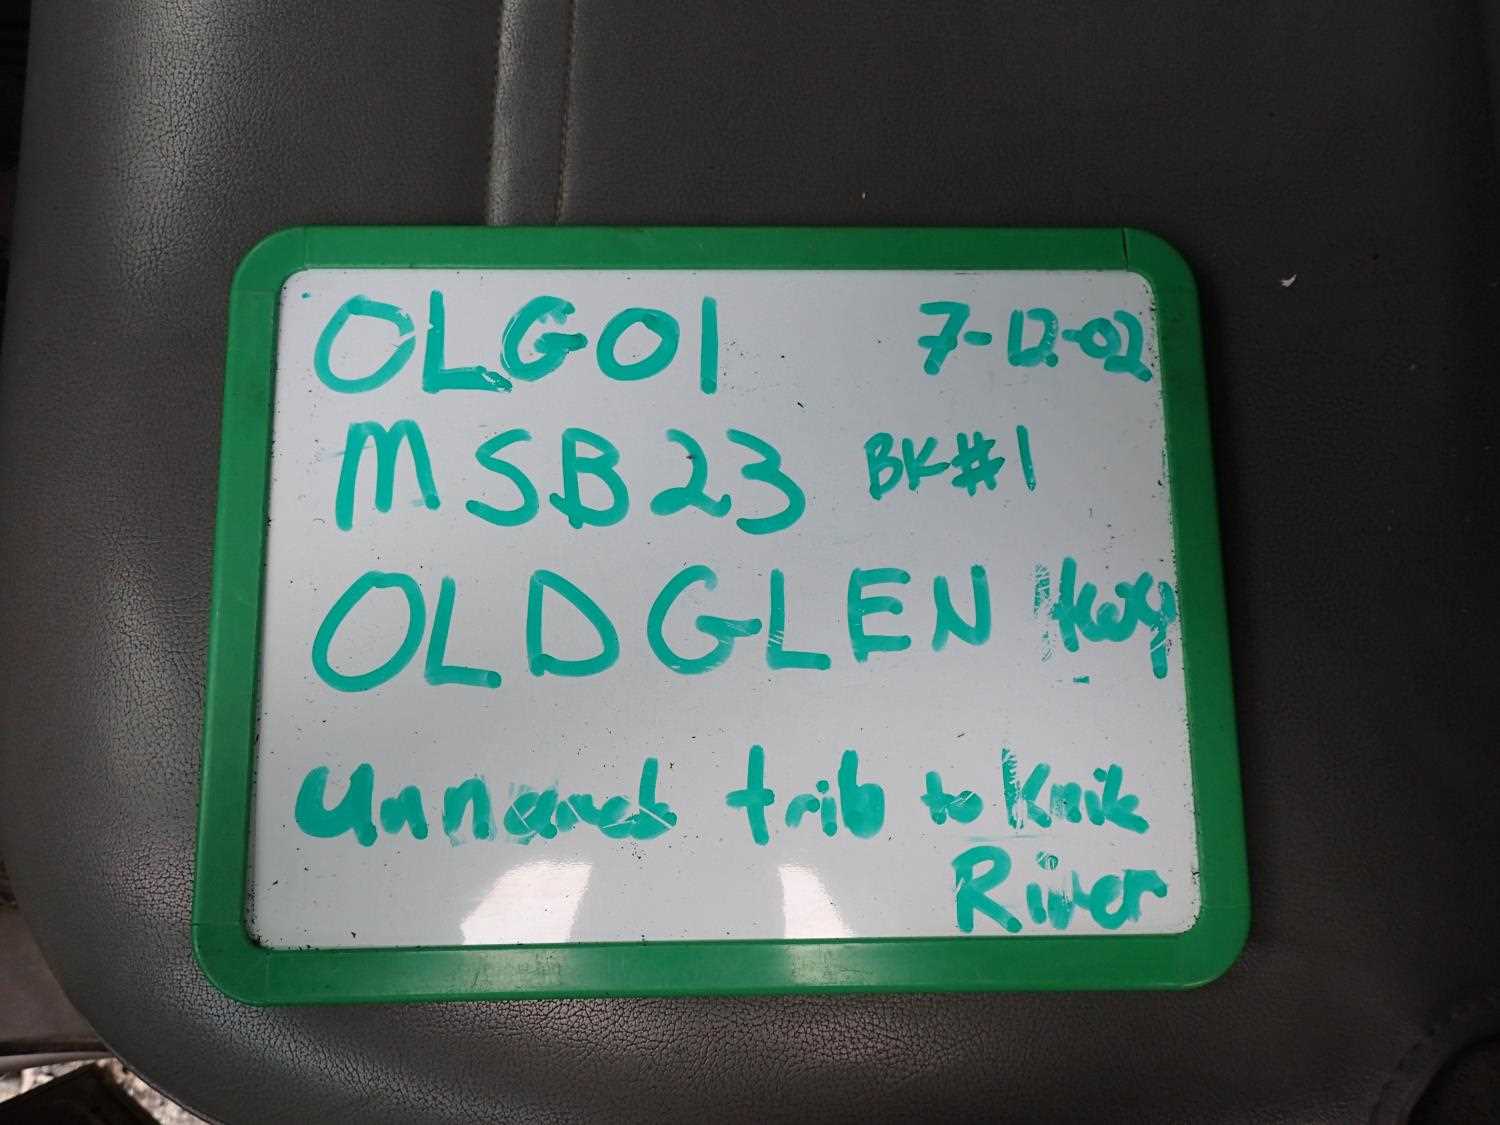 OLG01 7-12-02
MSB23 BK#1
OLD GLEN Hwy
Unnamed trib to Knik
River